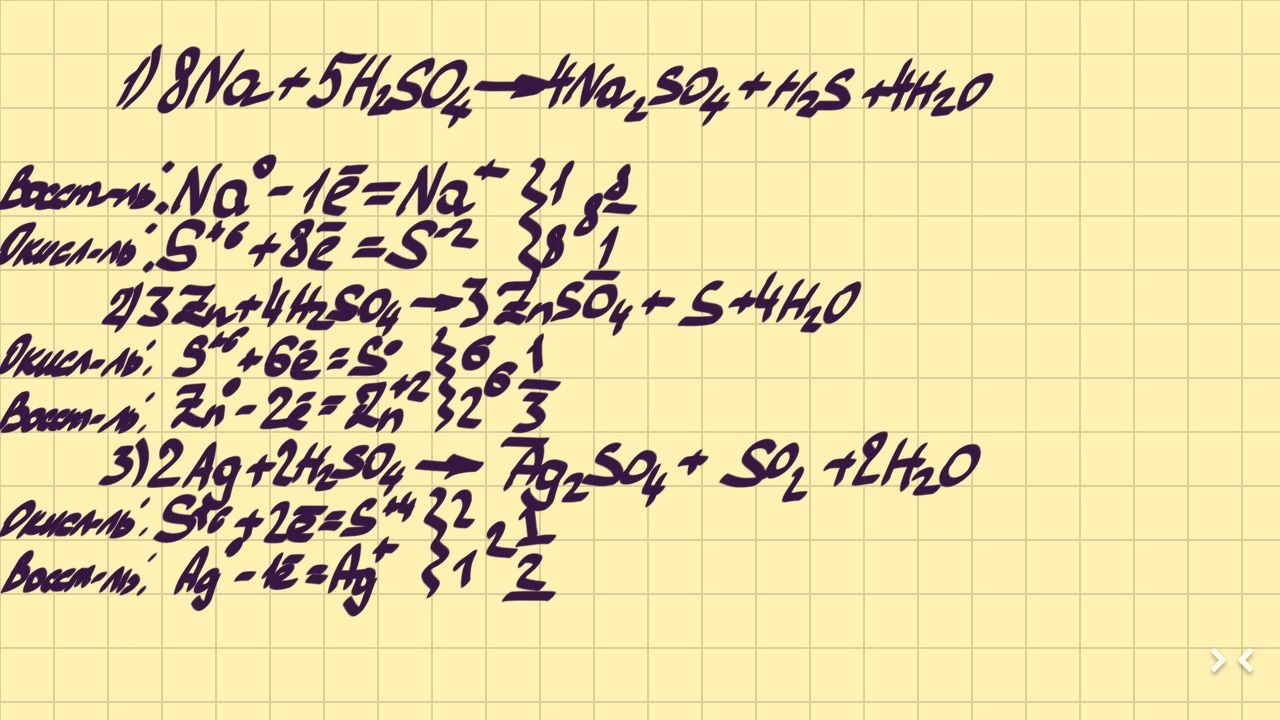 1) 8Na + 5H₂SO₄ → 4Na₂SO₄ + H₂S + 4H₂O
Восст-ль: Na⁰ - 1ē = Na⁺ } 1 8 8
Окисл-ль: S⁺⁶ + 8ē = S⁻² } 8 1
2) 3Zn + 4H₂SO₄ → 3ZnSO₄ + S + 4H₂O
Окисл-ль: S⁺⁶ + 6ē = S⁰ } 6 6 1
Восст-ль: Zn⁰ - 2ē = Zn⁺² } 2 3
3) 2Ag + 2H₂SO₄ → Ag₂SO₄ + SO₂ + 2H₂O
Окисл-ль: S⁺⁶ + 2ē = S⁺⁴ } 2 2 1
Восст-ль: Ag⁰ - 1ē = Ag⁺ } 1 2